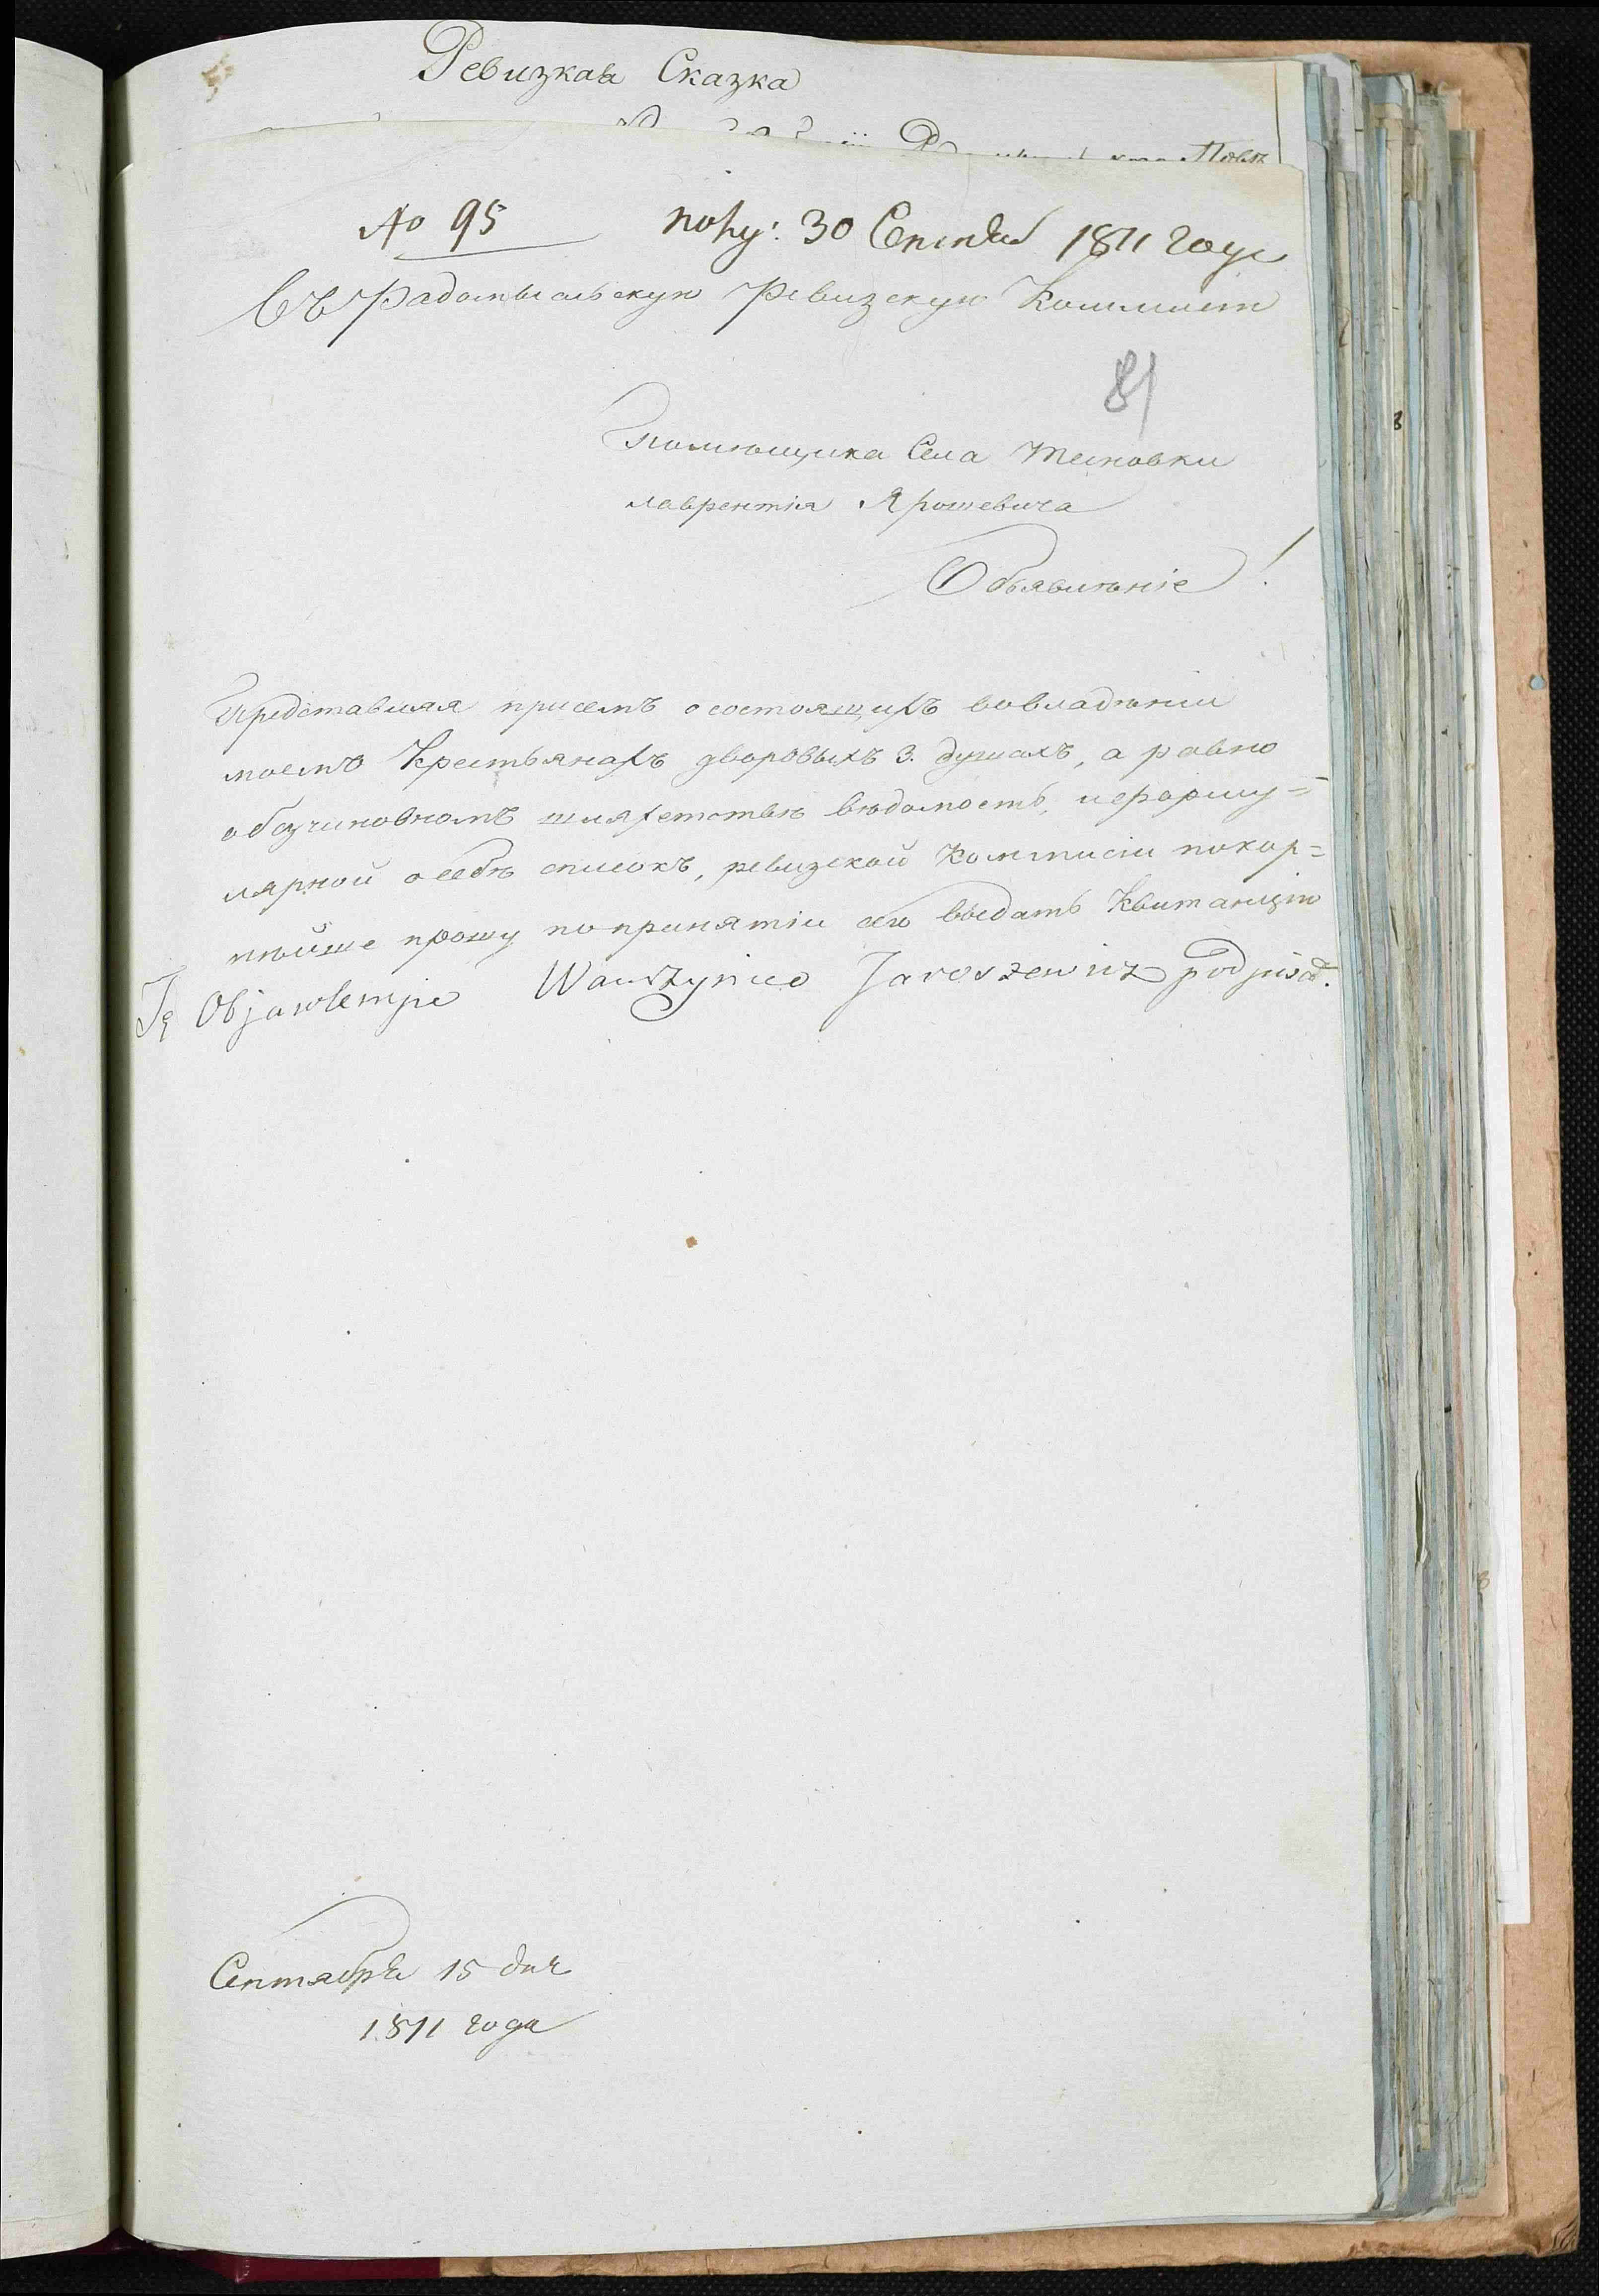 Ревизкая Сказка
№ 95 полу: 30 Сентяб 1811 году
Въ Радомысльскую Ревизскую Коммисiю
81
Помѣщика Села Тесновки
лаврентiя Ярошевича
Объявлѣнiе!
Представляя присемъ о состоящихъ вовладѣнiи
моемъ Крестьянахъ дворовыхъ 3. душахъ, а равно
обезчиновномъ шляхетствѣ вѣдомость, иформу=
лярной о себѣ списокъ, ревизской Коммисiи покор=
нѣйше прошу попринятiи сего выдать Квитанцiю
Te Objawlenije Wawrzyniec Jaroszewicz podpisał.
Сентября 15 дня
1811 года